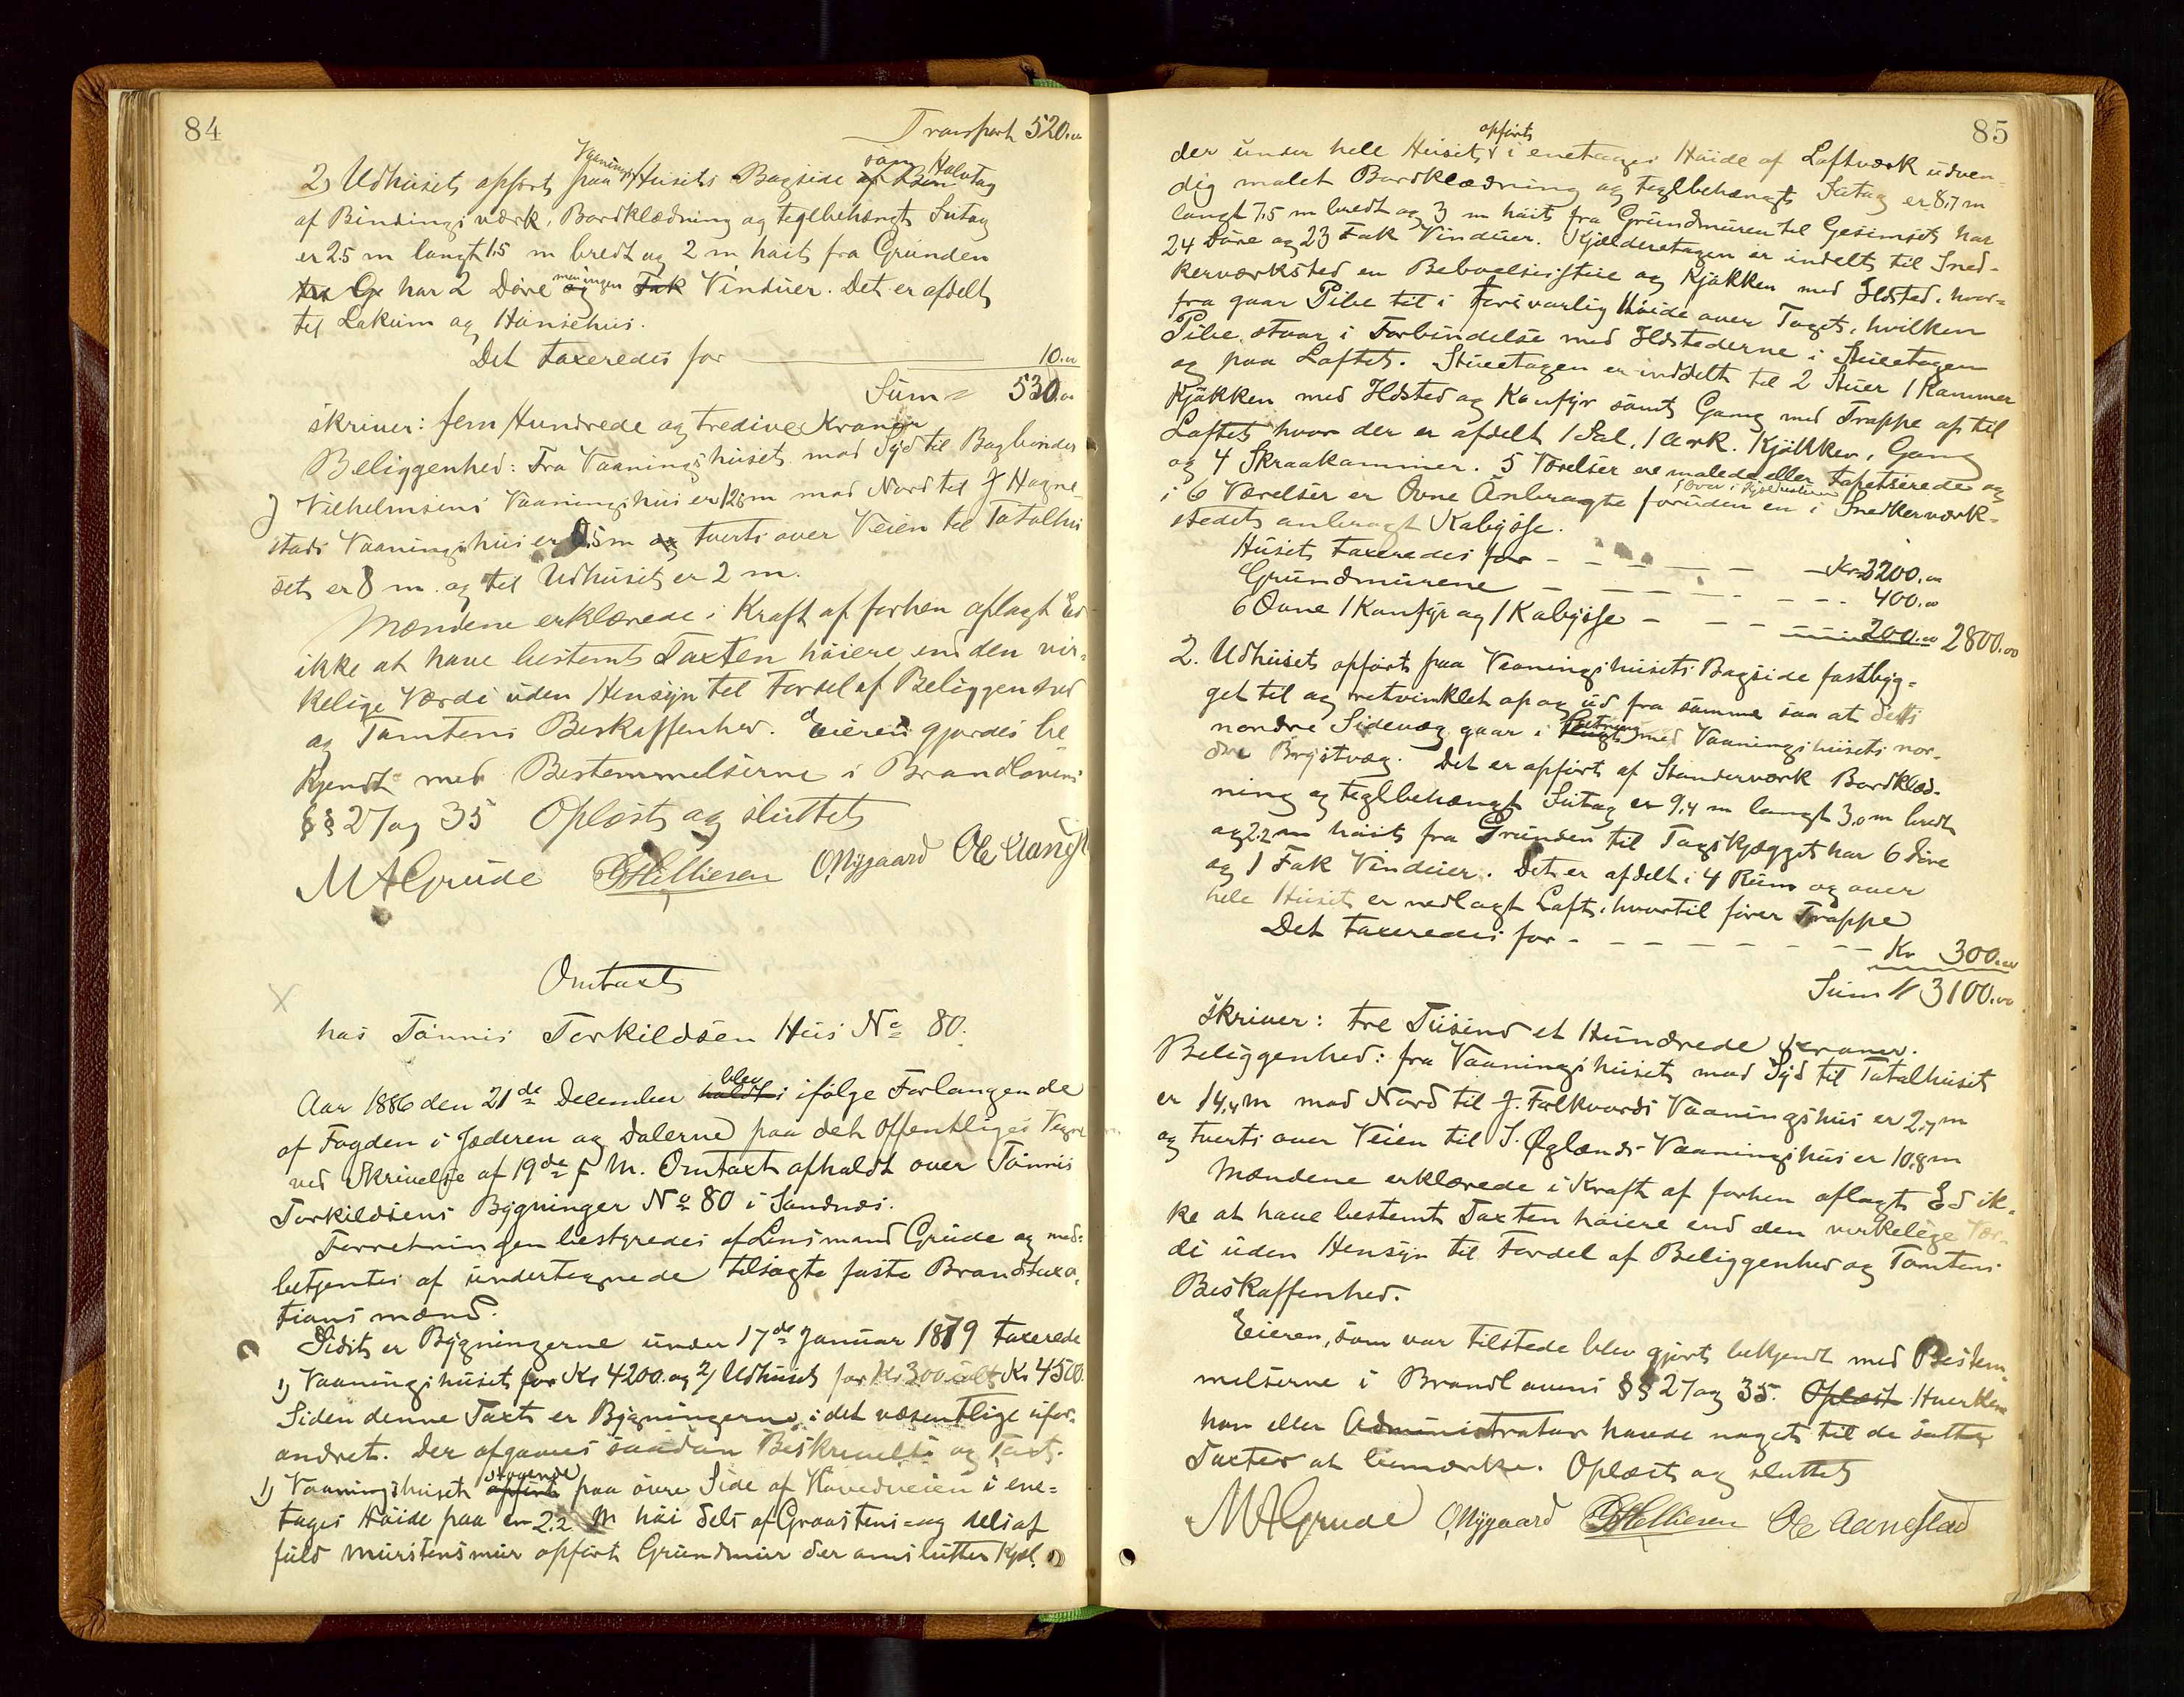 84
Transport 520.00
2) Udhuset opført paa Vaanings Husets Bagside af Bin som Halvtag
af Bindingsværk, Bordklædning og teglbehængt Sutag
er 2.5 m langt 1,5 m bredt og 2 m høit fra Grunden
tra Ge har 2 Døre og men ingen Fak Vinduer. Det er afdelt
til Lokum og Hønsehus.
Det taxeredes for 10.00
Sum = 530.00
skriver: fem Hundrede og tredive Kroner
Beliggenhed: Fra Vaaningshuset mod Syd til Bagbinder
J Vilhelmsens Vaaningshus er 12,5 m mod Nord til J Hogne-
stads Vaaningshus er 0.5 m og tverts over Veien til Totalhu
set er 8 m. og til Udhuset er 2 m.
Mændene erklærede i Kraft af forhen aflagt Ed
ikke at have bestemt Taxten høiere end den vir-
kelige Værdi uden Hensyn til Fordel af Beliggenhed
og Tomtens Beskaffenhed. Eieren gjordes be
kjendt med Bestemmelserne i Brandlovens
§§ 27 og 35 Oplæst og sluttet
M A Grude G Helliesen O. Nygaard Ole Aanest
Omtaxt
X
hos Tønnis Torkildsen Hus No 80.
Aar 1886 den 21de December holdtes blev ifølge Forlangende
af Fogden i Jæderen og Dalerne paa det Offentliges Vegne
ved Skrivelse af 19de f M. Omtaxt afholdt over Tønnis
Torkildsens Bygninger No 80 i Sandnæs.
Forretningen bestyredes af Lensmand Grude og med-
betjentes af undertegnede tilsagte faste Brandtaxa-
tions mænd.
Sidst er Bygningerne under 17de Januar 1879 taxerede
1) Vaaningshuset for Kr 4200. og 2) Udhuset for Kr 300 ialt Kr 4500.
Siden denne Taxt er Bygningerne i det væsentlige ufor-
andret. Der afgaves saadan Beskrivelse og Taxt.
1) Vaaningshuset opført staaende paa øvre Side af Hovedveien i ene-
tages Høide paa en 2.2 M høi dels af Graastens- og dels af
fuld murstensmur opført Grundmur der omslutter Kjel
85
der under hele Huset, opført i enetages Høide af Laftværk udven-
dig malet Bordklædning og teglbehængt Sutag er 8,7 m
langt 7,5 m bredt og 3 m høit fra Grundmuren til Gesimset har
24 Døre og 23 Fak Vinduer. Kjælderetagen er indelt til Sned-
kerværksted en Beboelsesstue og Kjøkken med Ildsted, hvor-
fra gaar Pibe til i forsvarlig Høide over Taget, hvilken
Pibe staar i Forbindelse med Ildstederne i Stueetagen
og paa Loftet. Stueetagen er inddelt til 2 Stuer 1 Kammer
Kjøkken med Ildsted og Komfyr samt Gang med Trappe op til
Loftet hvor der er afdelt 1 Sal, 1 Ark. Kjøkken, Gang
og 4 Skraakammer. 5 Værelser ere malede eller tapetserede og
i 6 Værelser er Ovne Anbragte foruden en i Snedkerværk-
stedet anbragt Kabysse.
Huset taxeredes for - - - - - Kr 2200.00
Grundmurene - - - - - 400.00
6 Ovne 1 Komfyr og 1 Kabysse - - - 200.00 2800.00
2. Udhuset opført paa Vaaningshusets Bagside fastbyg-
get til og retvinklet op og ud fra samme saa at dets
nordre Sidevæg gaar i med Vaaningshusets nor-
dre Brystvæg. Det er opført af Standerværk Bordklæd-
ning og teglbehængt Sutag er 9,4 m langt 3,0 m bredt
og 2,2 m høit fra Grunden til Tagskjægget har 6 Døre
og 1 Fak Vinduer. Det er afdelt i 4 Rum og over
hele Huset er nedlagt Loft, hvortil fører Trappe
Det taxeredes for - - - - - - - Kr 300.00
Sum Kr 3100.00
skriver: tre Tusind et Hundrede Kroner.
Beliggenhed: fra Vaaningshuset mod Syd til Totalhuset
er 14,4 m mod Nord til J. Folkvords Vaaningshus er 2,7 m
og tverts over Veien til S. Øglænds Vaaningshus er 10,8 m
Mændene erklærede i Kraft af forhen aflagt Ed ik-
ke at have bestemt Taxten høiere end den virkelige Vær-
di uden Hensyn til Fordel af Beliggenhed og Tomtens
Beskaffenhed.
Eieren, som var tilstede blev gjort bekjendt med Bestem-
melserne i Brandlovens §§ 27 og 35. Oplæst Hverken
han eller Administrator havde noget til de satte
Taxter at bemærke. Oplæst og sluttet
M A Grude O. Nygaard G Helliesen Ole Aanestad